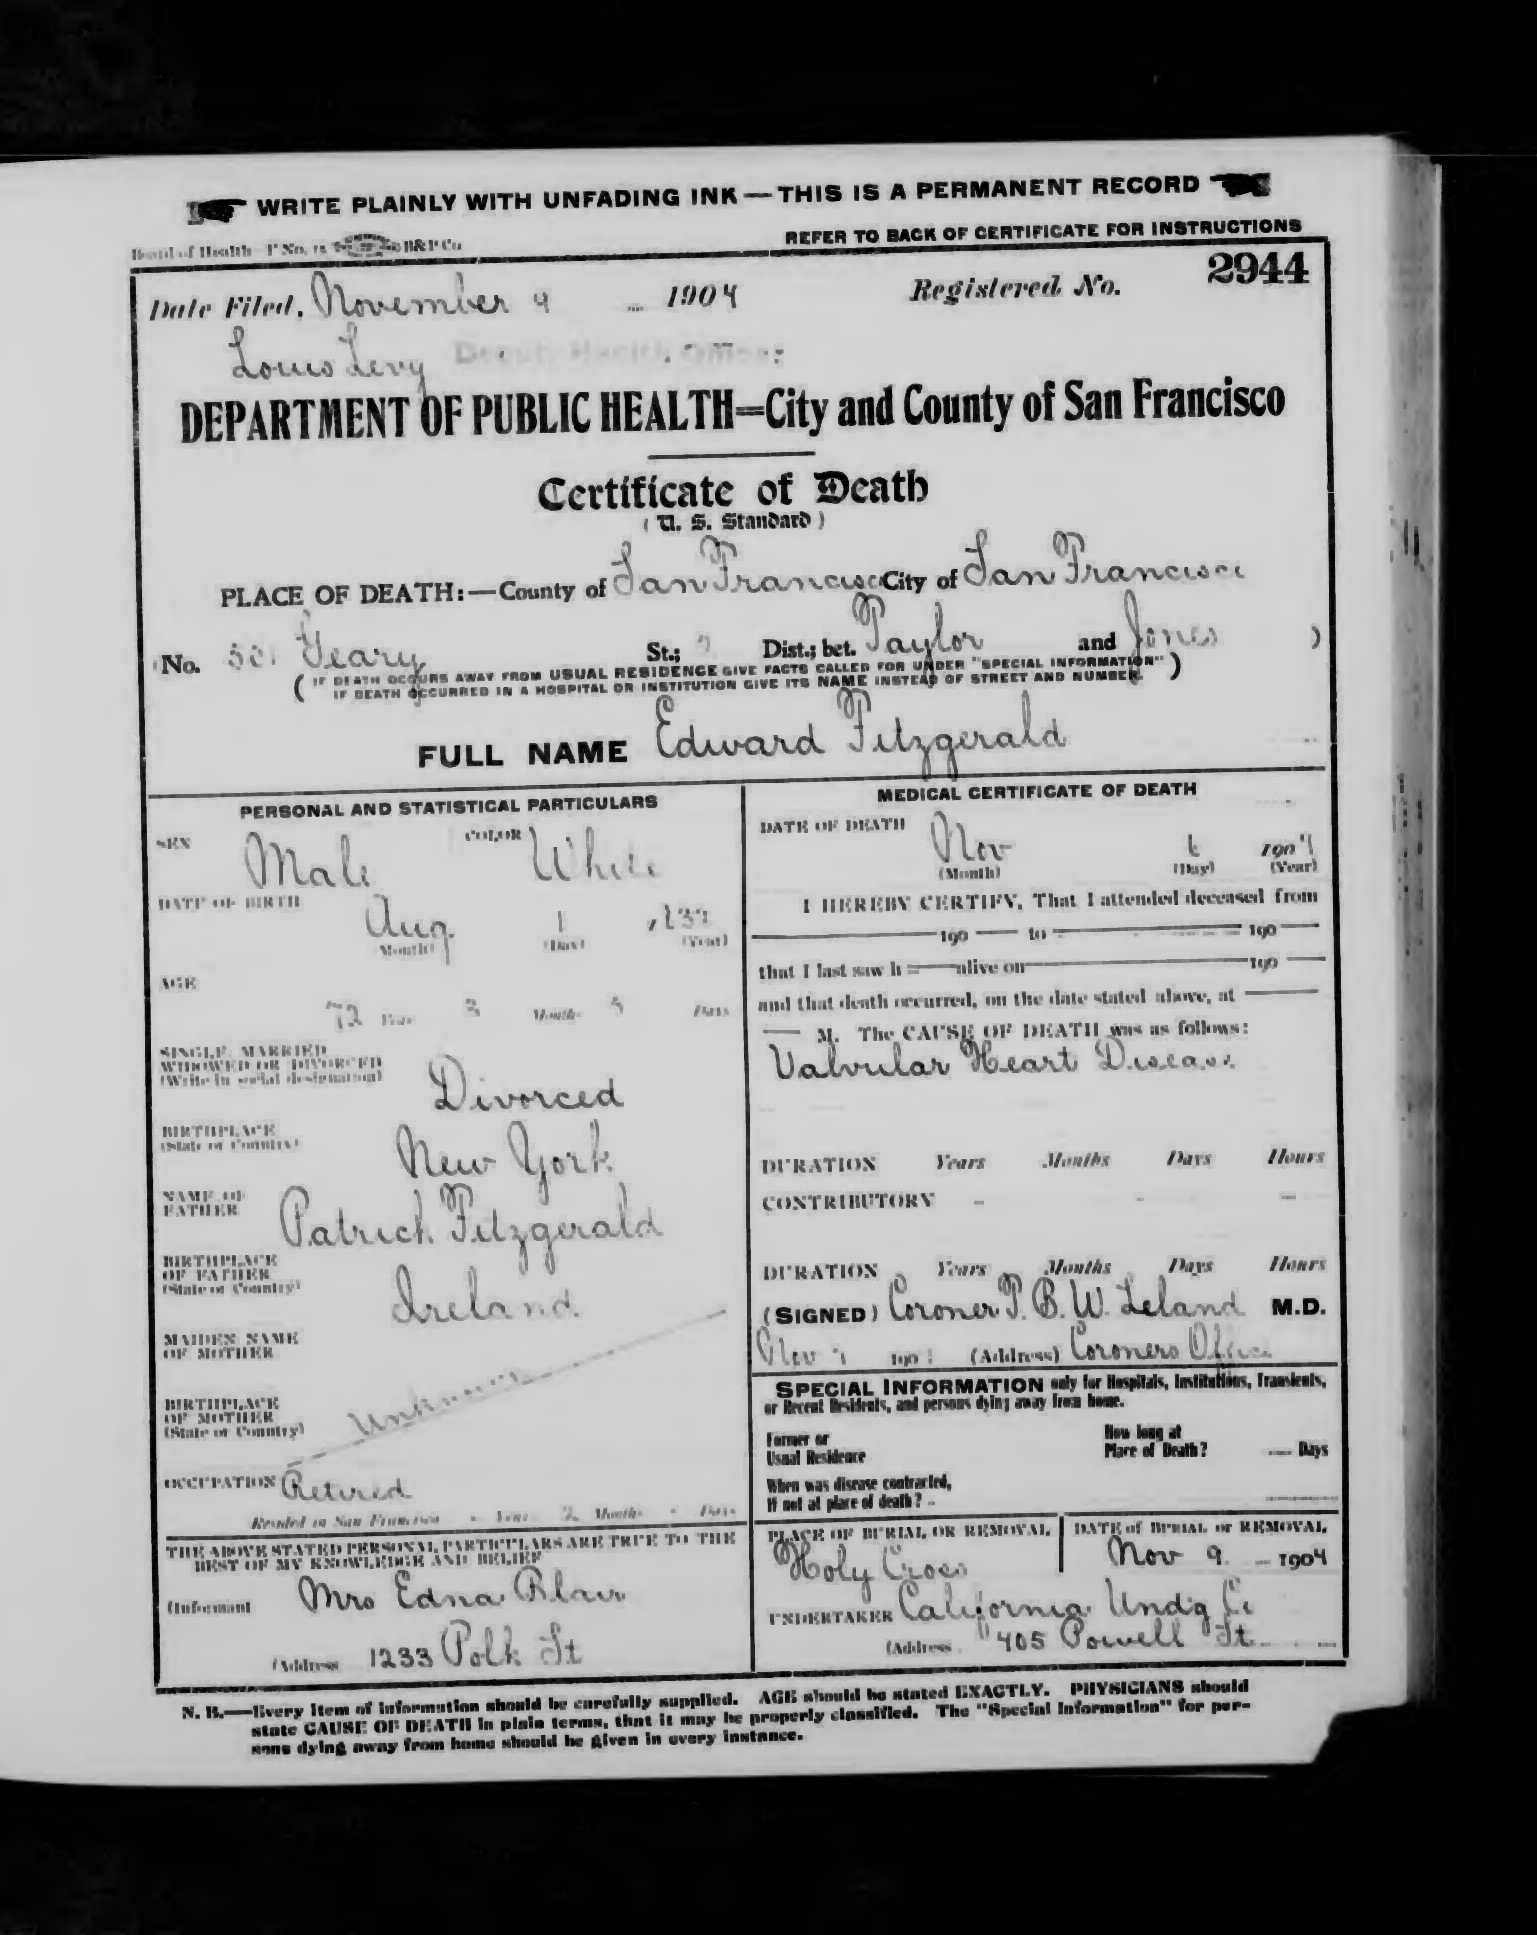 WRITE PLAINLY WITH UNFADING INK — THIS IS A PERMANENT RECORD
REFER TO BACK OF CERTIFICATE FOR INSTRUCTIONS
Board of Health B&P Co
Date Filed, November 9 1904 Registered No. 2944
Louis Levy Deputy Health Officer
DEPARTMENT OF PUBLIC HEALTH=City and County of San Francisco
Certificate of Death
(U. S. Standard)
PLACE OF DEATH:—County of San Francisco City of San Francisco
(No. Geary St.; Dist.; bet. Taylor and Jones )
( IF DEATH OCCURS AWAY FROM USUAL RESIDENCE GIVE FACTS CALLED FOR UNDER "SPECIAL INFORMATION" )
IF DEATH OCCURRED IN A HOSPITAL OR INSTITUTION GIVE ITS NAME INSTEAD OF STREET AND NUMBER.
FULL NAME Edward Fitzgerald
PERSONAL AND STATISTICAL PARTICULARS
SEX Male COLOR White
DATE OF BIRTH
Aug 1
(Month) (Day) (Year)
AGE
72 Years 3 Months 5 Days
SINGLE, MARRIED
WIDOWED OR DIVORCED
(Write in social designation)
Divorced
BIRTHPLACE
(State or Country)
New York
NAME OF
FATHER
Patrick Fitzgerald
BIRTHPLACE
OF FATHER
(State or Country)
Ireland
MAIDEN NAME
OF MOTHER
BIRTHPLACE
OF MOTHER
(State or Country)
Unknown
OCCUPATION Retired
Resided in San Francisco - Years 2 Months - Days
THE ABOVE STATED PERSONAL PARTICULARS ARE TRUE TO THE
BEST OF MY KNOWLEDGE AND BELIEF
(Informant Mrs Edna Blair
(Address 1233 Polk St
MEDICAL CERTIFICATE OF DEATH
DATE OF DEATH
Nov 6 1904
(Month) (Day) (Year)
I HEREBY CERTIFY, That I attended deceased from
190 to 190
that I last saw h alive on 190
and that death occurred, on the date stated above, at
M. The CAUSE OF DEATH was as follows:
Valvular Heart Disease
DURATION Years Months Days Hours
CONTRIBUTORY
DURATION Years Months Days Hours
(SIGNED) Coroner T. B. W. Leland M.D.
Nov 190 (Address) Coroners Office
SPECIAL INFORMATION only for Hospitals, Institutions, Transients,
or Recent Residents, and persons dying away from home.
Former or
Usual Residence
How long at
Place of Death? Days
When was disease contracted,
If not at place of death?
PLACE OF BURIAL OR REMOVAL
Holy Cross
DATE of BURIAL or REMOVAL
Nov 9 1904
UNDERTAKER California Und'g Co
(Address 405 Powell St
N. B.—Every item of information should be carefully supplied. AGE should be stated EXACTLY. PHYSICIANS should
state CAUSE OF DEATH in plain terms, that it may be properly classified. The "Special Information" for per-
sons dying away from home should be given in every instance.